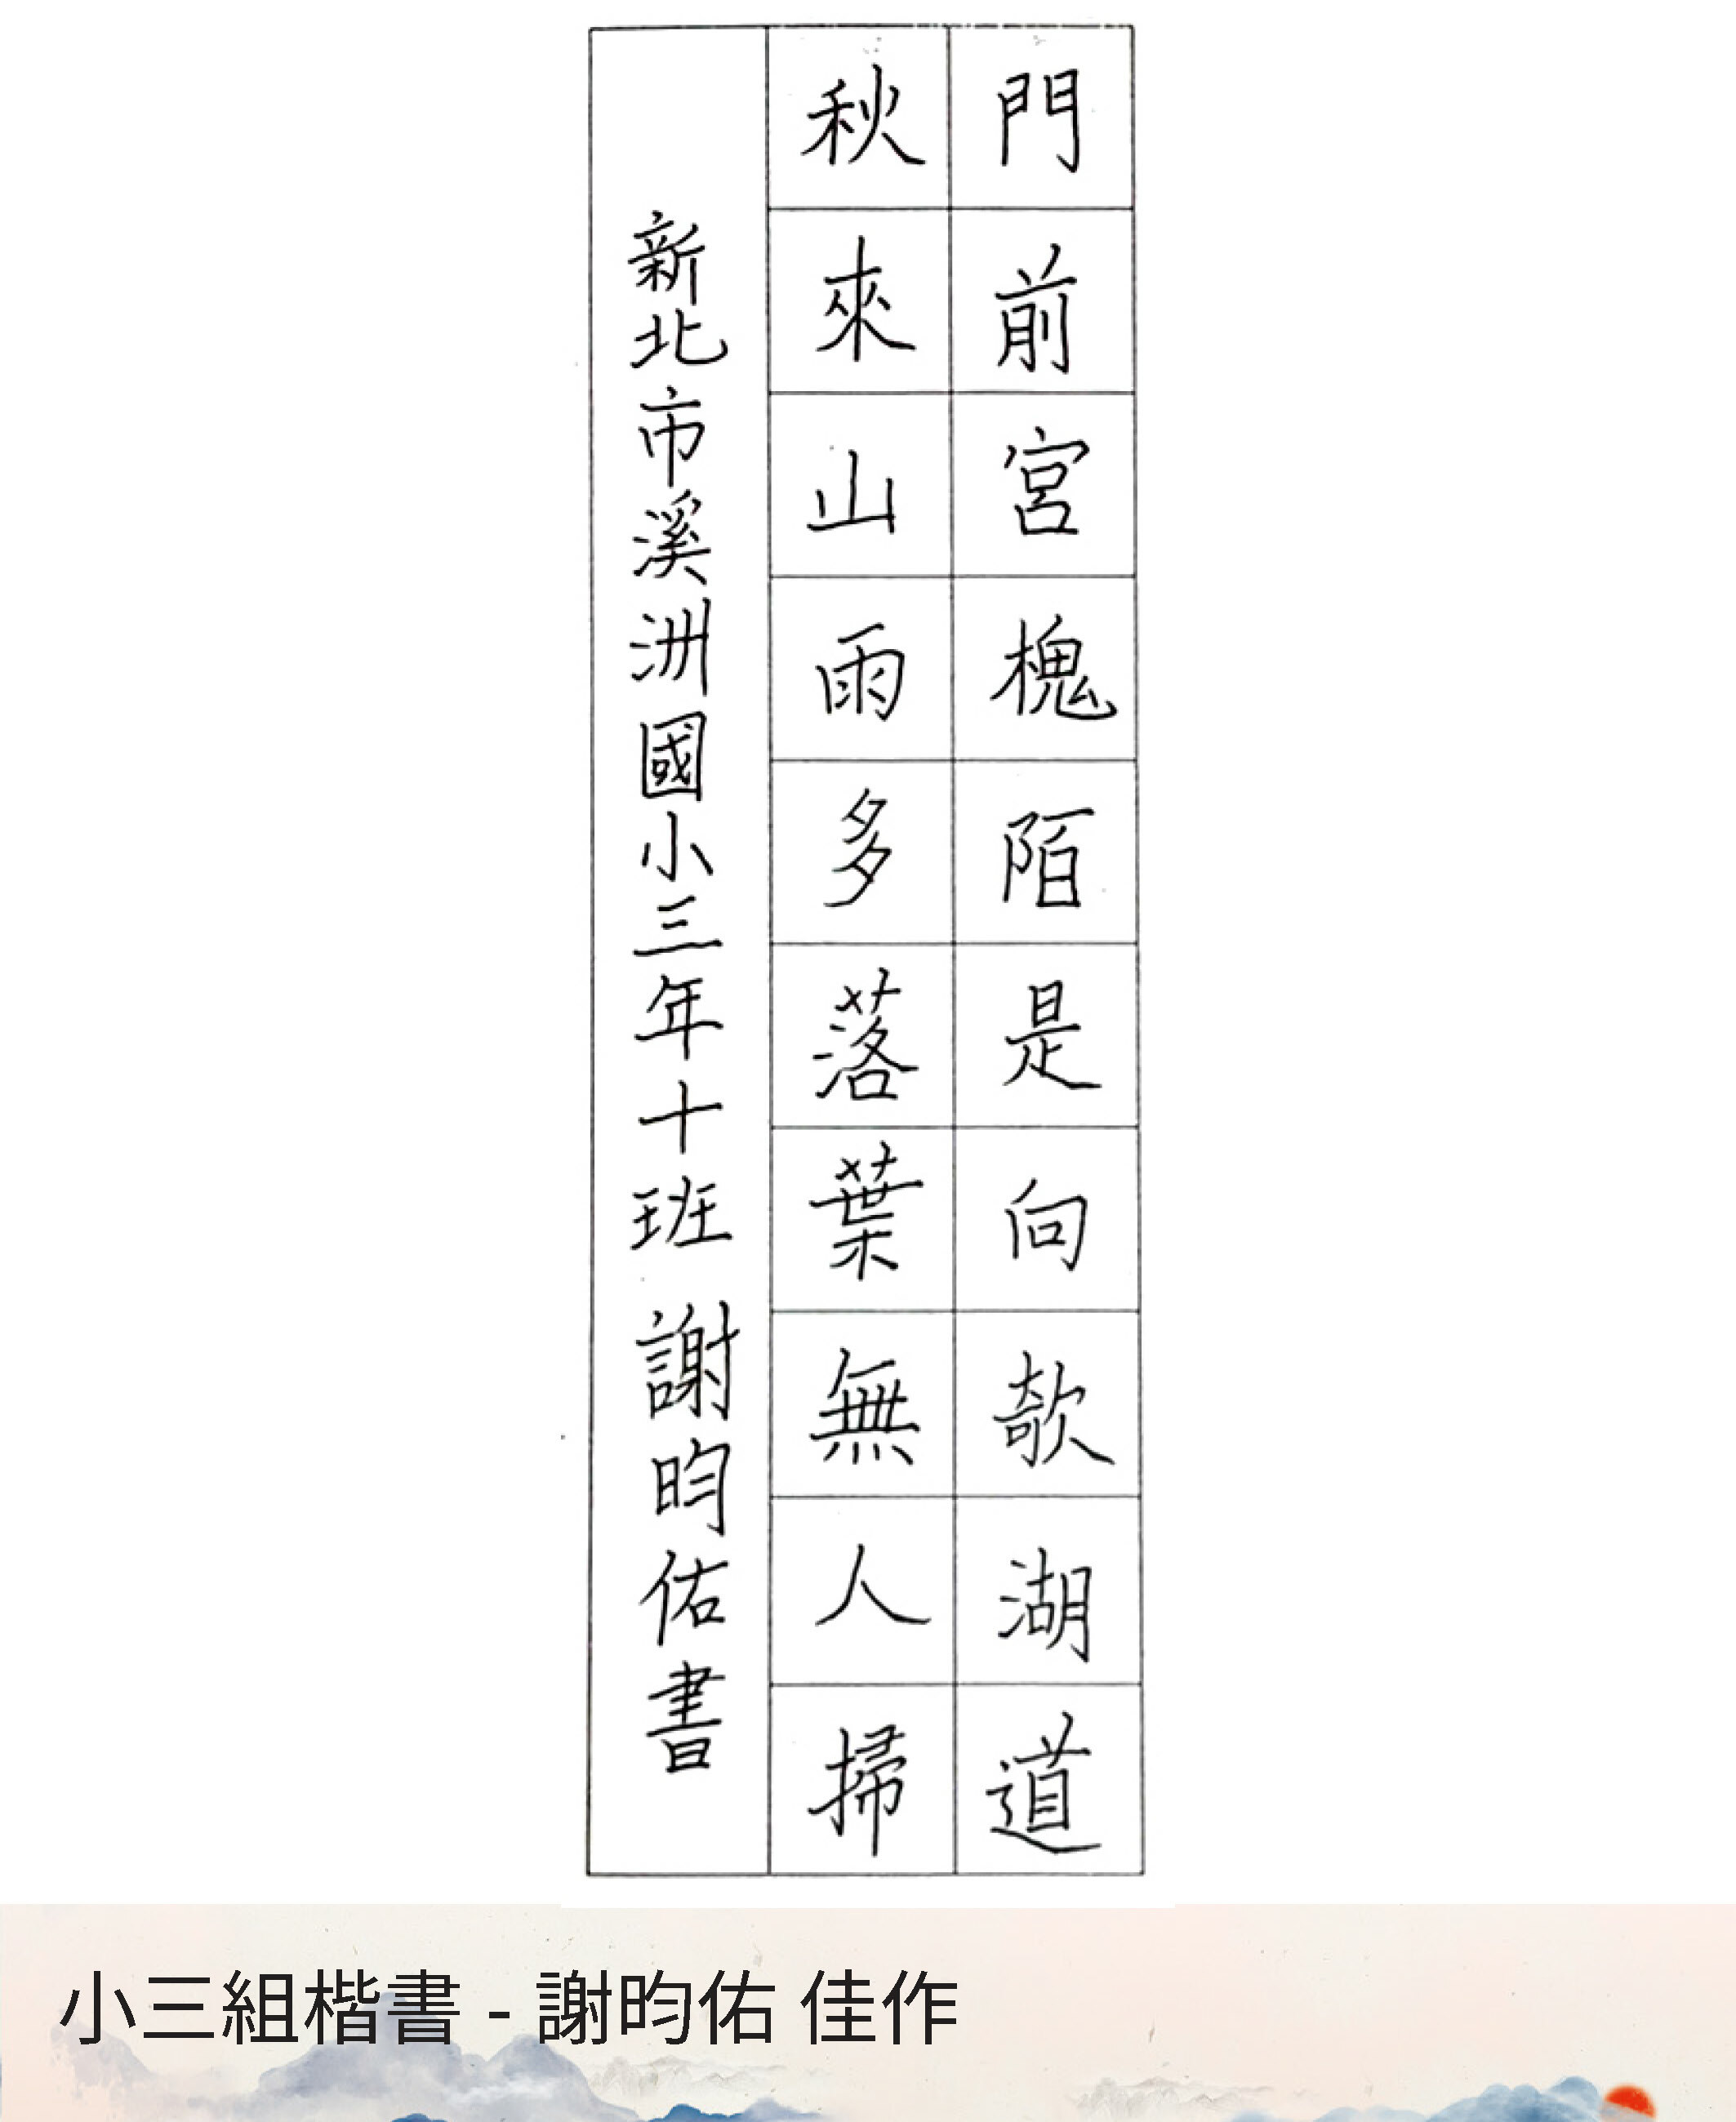 門前宮槐陌是向欹湖道
秋來山雨多落葉無人掃
新北市溪洲國小三年十班 謝昀佑書
小三組楷書 - 謝昀佑 佳作